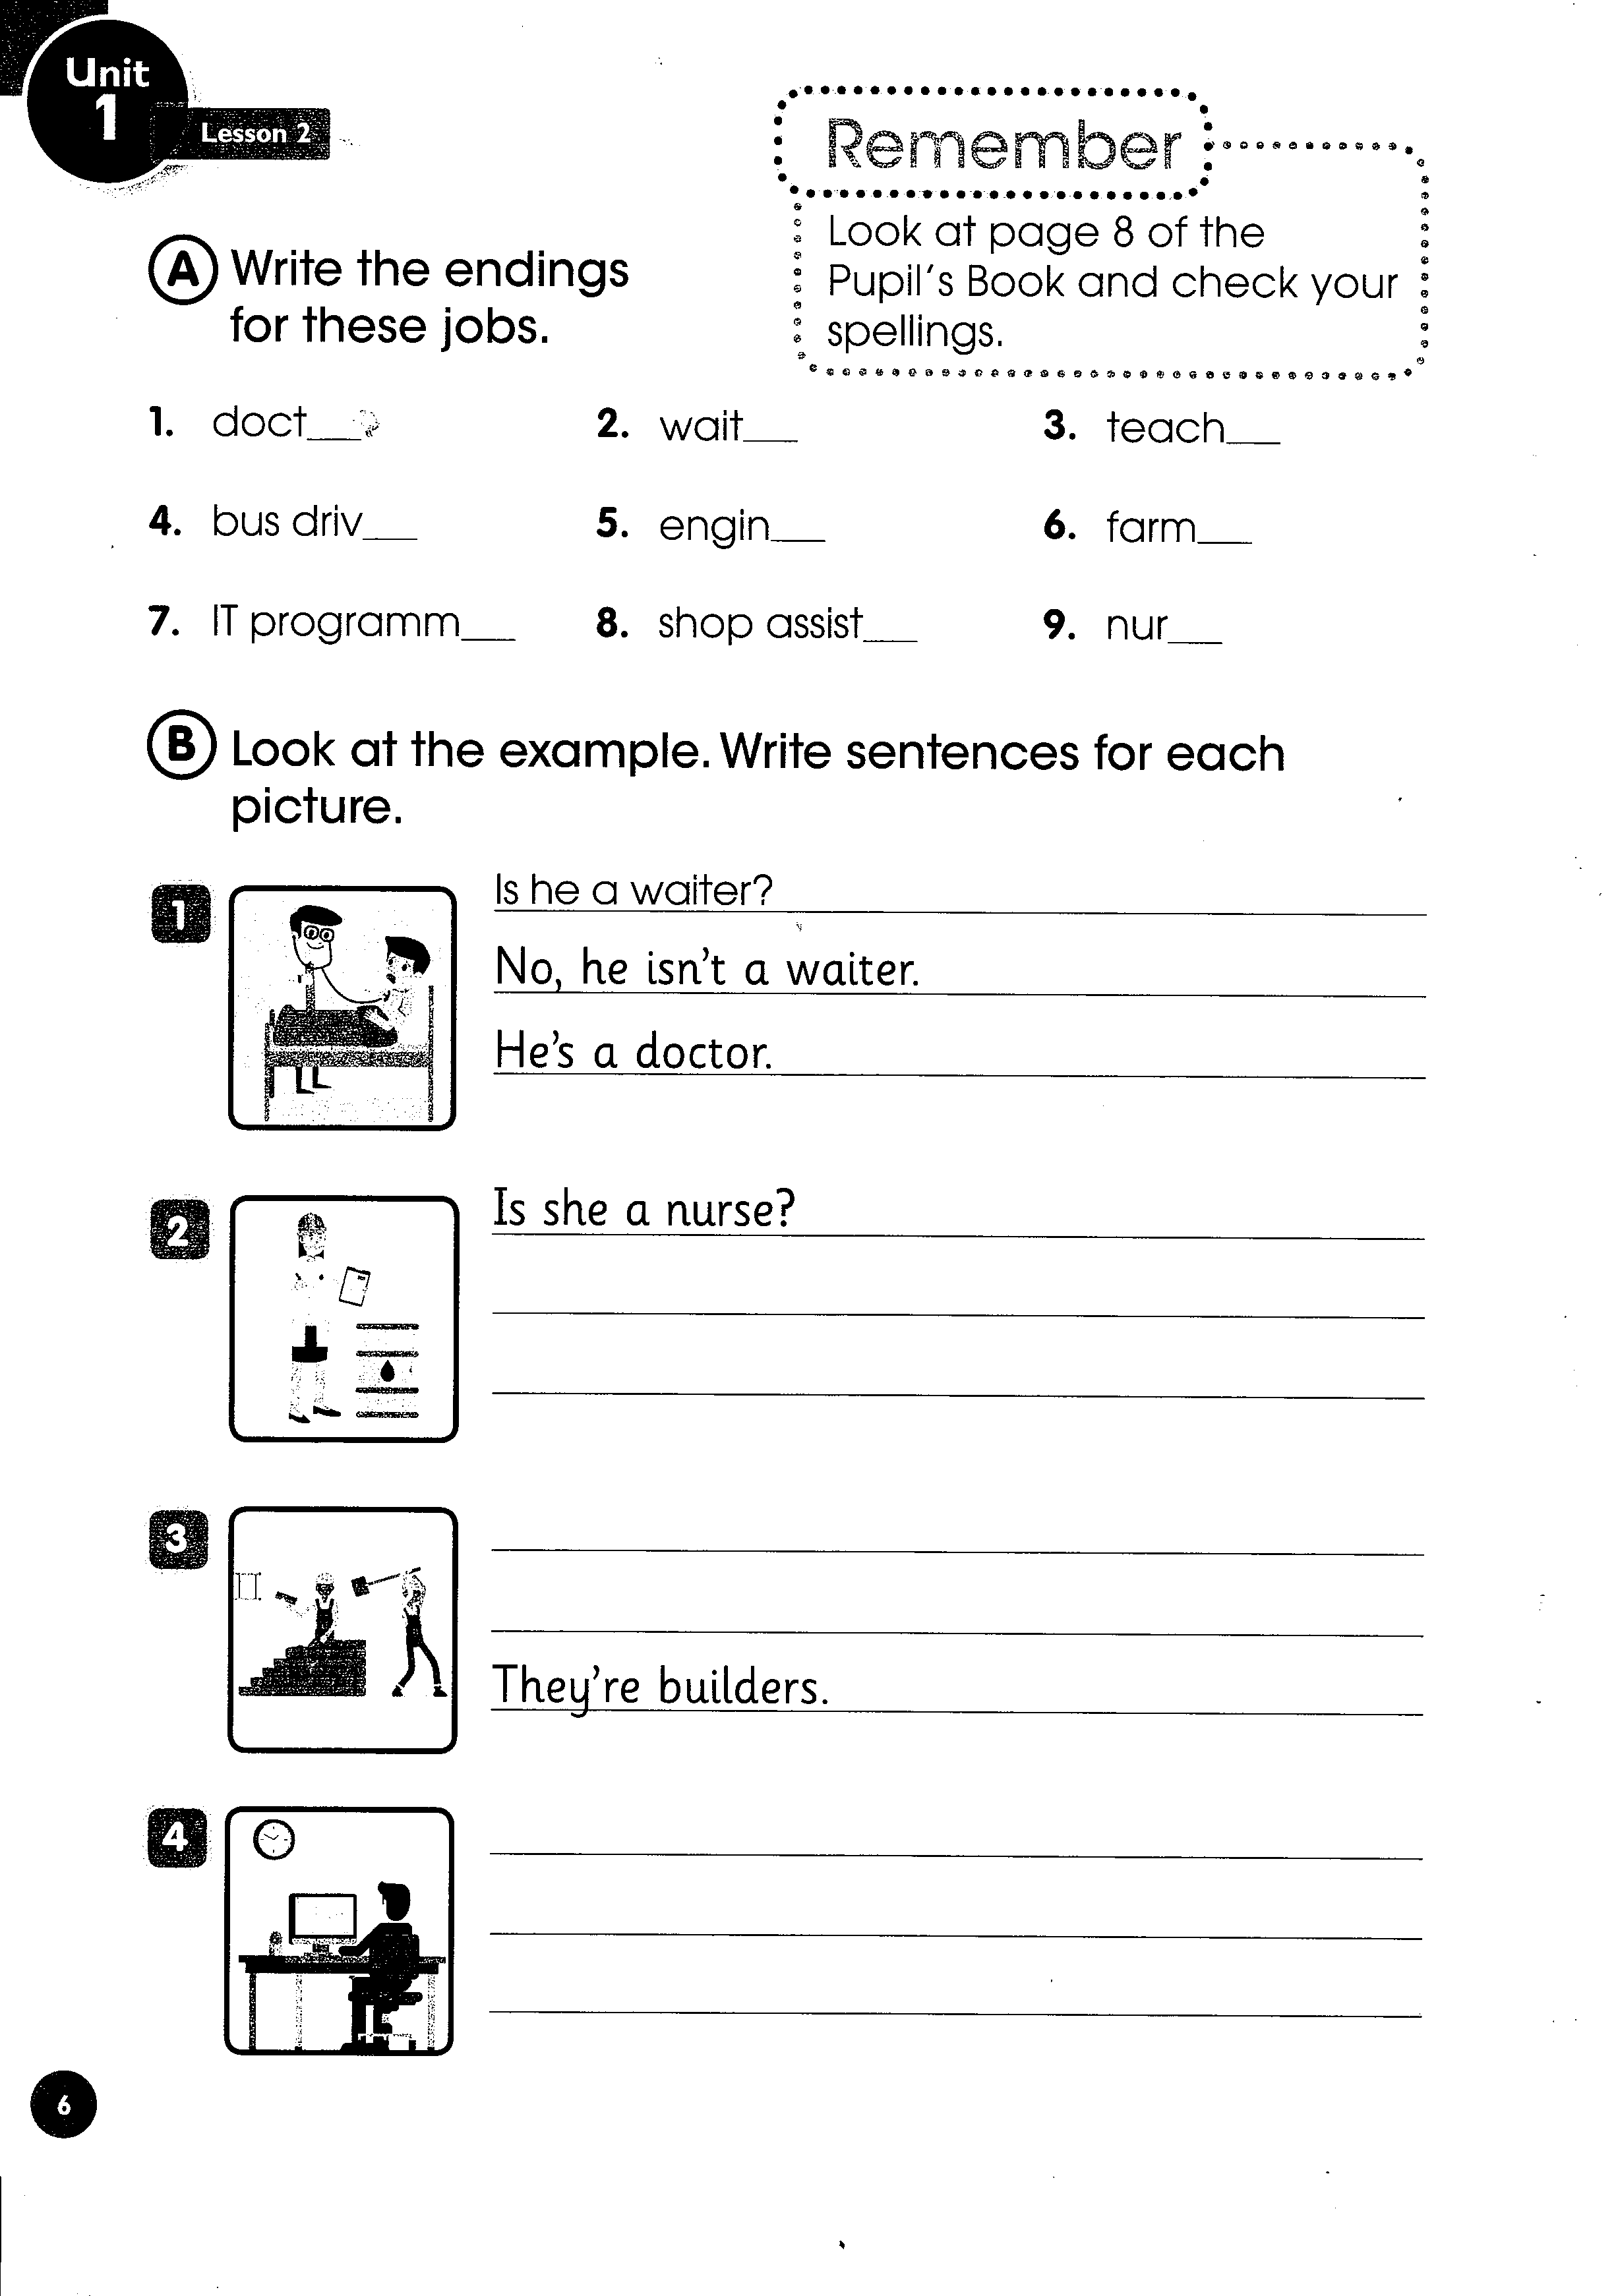 Unit
1
Lesson 2
Remember
Look at page 8 of the
Pupil's Book and check your
spellings.
A Write the endings
for these jobs.
1. doct__ 2. wait__ 3. teach__
4. bus driv__ 5. engin__ 6. farm__
7. IT programm__ 8. shop assist__ 9. nur__
B Look at the example. Write sentences for each
picture.
1
Is he a waiter?
No, he isn't a waiter.
He's a doctor.
2
Is she a nurse?
3
They're builders.
4
6